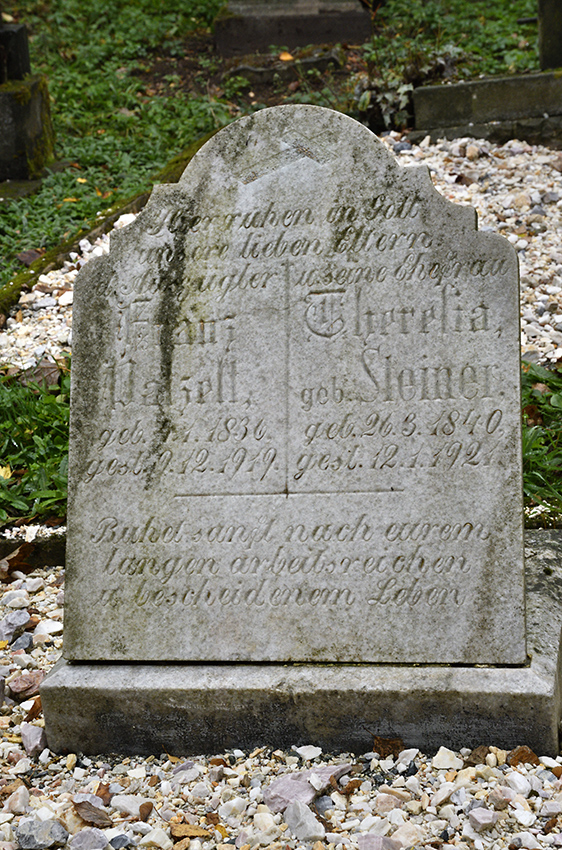 Hier ruhen in Gott
unsere lieben Eltern
Auszügler
Franz
Patzelt,
geb. 1. 1836.
gest. 9. 12. 1919.
u. seine Ehefrau
Theresia,
geb. Steiner.
geb. 26. 3. 1840.
gest. 12. 1. 1921.
Ruhet sanft nach eurem
langen arbeitsreichen
u. bescheidenem Leben